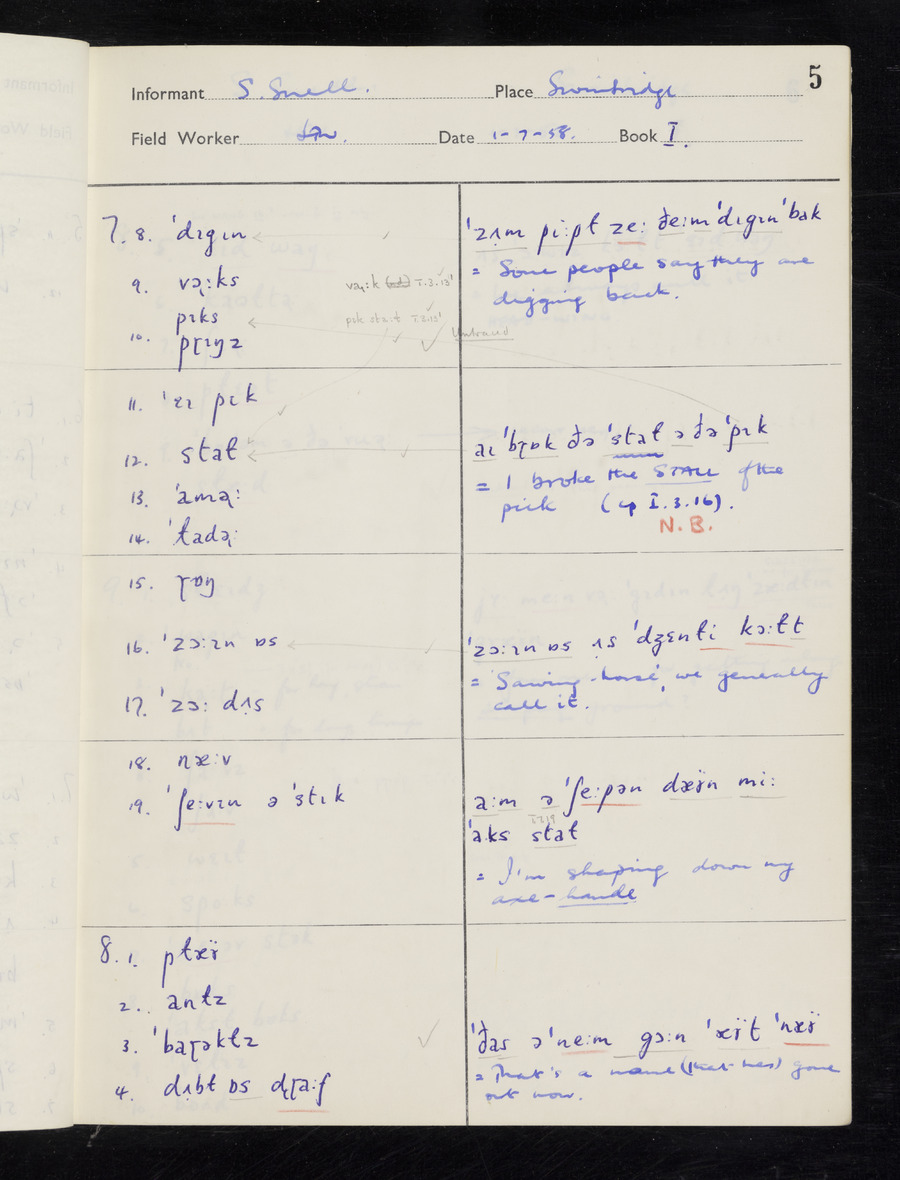 5
Informant S. Snell. Place Swimbridge
Field Worker Date 1-7-58. Book I.
7. 8. ˈdɪgɪn
9. vəɻːks
pɪks
10. pɽɪŋz
ˈzʌm piːpɫ zeː ðeːm ˈdɪgɪn ˈbak
= Some people say they are
digging back.
Untraced
11. ˈɛɪ pɪk
12. staɫ
13. ˈaməɻː
14. ˈɫadəɻː
aɪ ˈbɽɒk ðə ˈstaɫ ə ðə ˈpɪk
= I broke the STALL of the
pick (cp I.3.16).
N.B.
15. ɽɒŋ
16. ˈzɔːɪn ɒs
17. ˈzɔː dʌs
ˈzɔːɪn ɒs ʌs ˈdʒɛnɫi kɔːɫt
= Sawing-horse, we generally
call it.
18. næːv
19. ˈʃeːvɪn ə ˈstɪk
aːm ə ˈʃeːpən dæʏn miː
ˈaks staɫ
= I'm shaping down my
axe-handle
8. 1. pɫæʏ
2. antɫz
3. ˈbaɽəkɫz
4. dʌbɫ ɒs dɽaːf
ˈðas ə ˈneːm gɔːn ˈæʏt ˈnæʏ
= That's a name (that has) gone
out now.